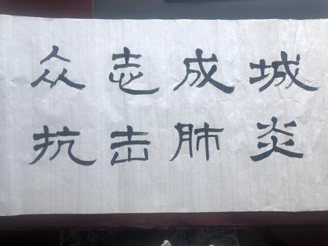 众志成城
抗击肺炎